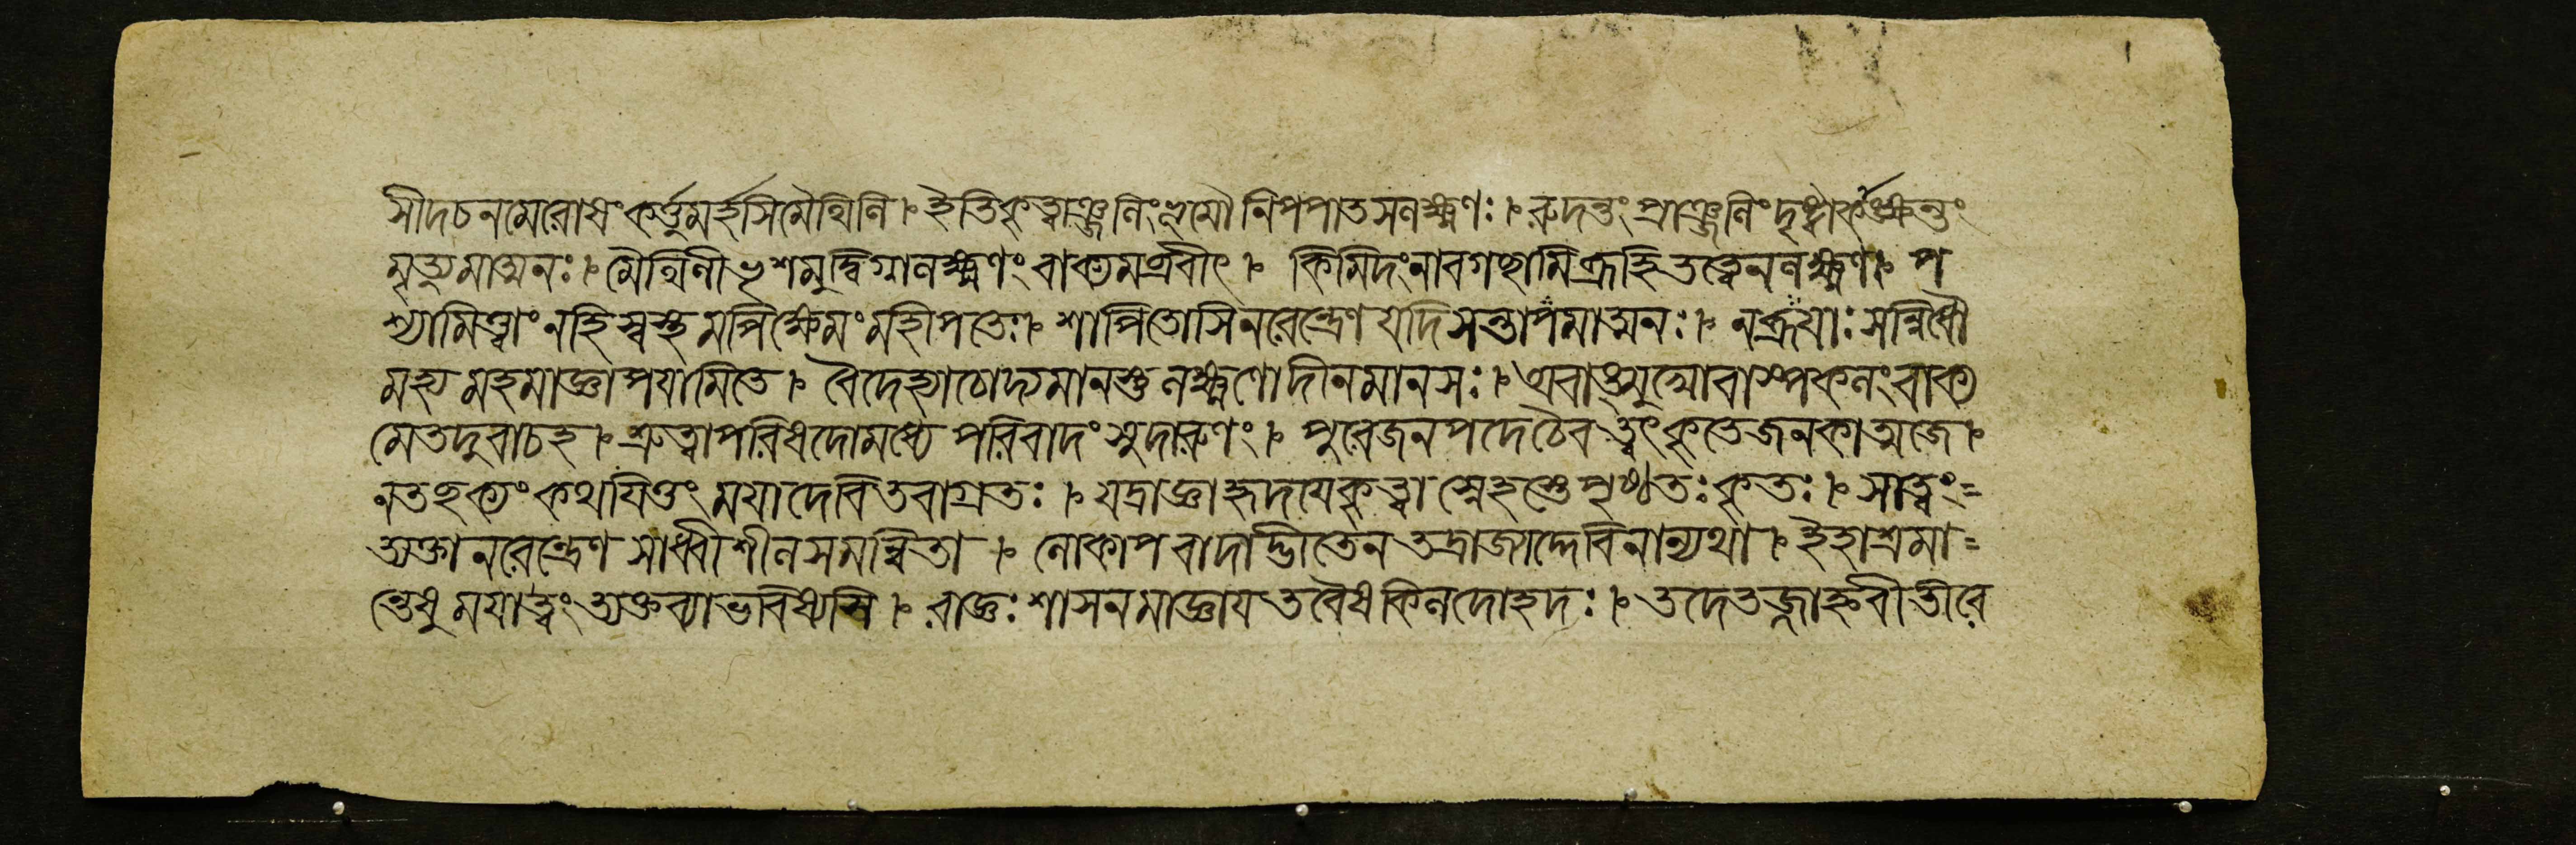 সীদচনমেরোষংকর্ত্তুমর্হসিমৈথিলি । ইতিকৃত্বাঞ্জলিংভূমৌনিপপাতসলক্ষ্মণঃ । রুদন্তংপ্রাঞ্জলিংদৃষ্ট্বাকাঙ্ক্ষন্তং
মৃত্যুমাত্মনঃ । মৈথিলীভৃশমুদ্বিগ্নালক্ষ্মণংবাক্যমব্রবীৎ । কিমিদংনাবগচ্ছামিব্রূহিতত্ত্বেনলক্ষ্মণ । প
শ্যামিত্বাংনহিস্বস্থমপিক্ষেমংমহীপতেঃ । শাপিতোসিনরেন্দ্রেণযদিসন্তাপমাত্মনঃ । নব্রূযাঃসন্নিধৌ
মহ্যমহমাজ্ঞাপযামিতে । বৈদেহ্যাচোদ্যমানস্তুলক্ষ্মণোদীনমানসঃ । অবাঙ্মুখোবাষ্পকলংবাক্য
মেতদুবাচহ । শ্রুত্বাপরিষদোমধ্যে পরিবাদংসুদারুণং । পুরেজনপদেচৈব ত্বৎকৃতেজনকাত্মজে ।
নতচ্ছক্যংকথযিতুং মযাদেবিতবাগ্রতঃ । যদ্রাজ্ঞাহৃদযেকৃত্বা স্নেহস্তেপৃষ্ঠতঃকৃতঃ । সাত্বং=
ত্যক্তানরেন্দ্রেণ সাধ্বীশীলসমন্বিতা । লোকাপবাদাদ্ভীতেন তদ্রাজ্যাদ্দেবিনান্যথা । ইহাশ্রমা=
ন্তেষু মযাত্বং ত্যক্তব্যাভবিষ্যসি । রাজ্ঞঃশাসনমাজ্ঞায তবৈষকিলদোহদঃ । তদেতজ্জাহ্নবীতীরে